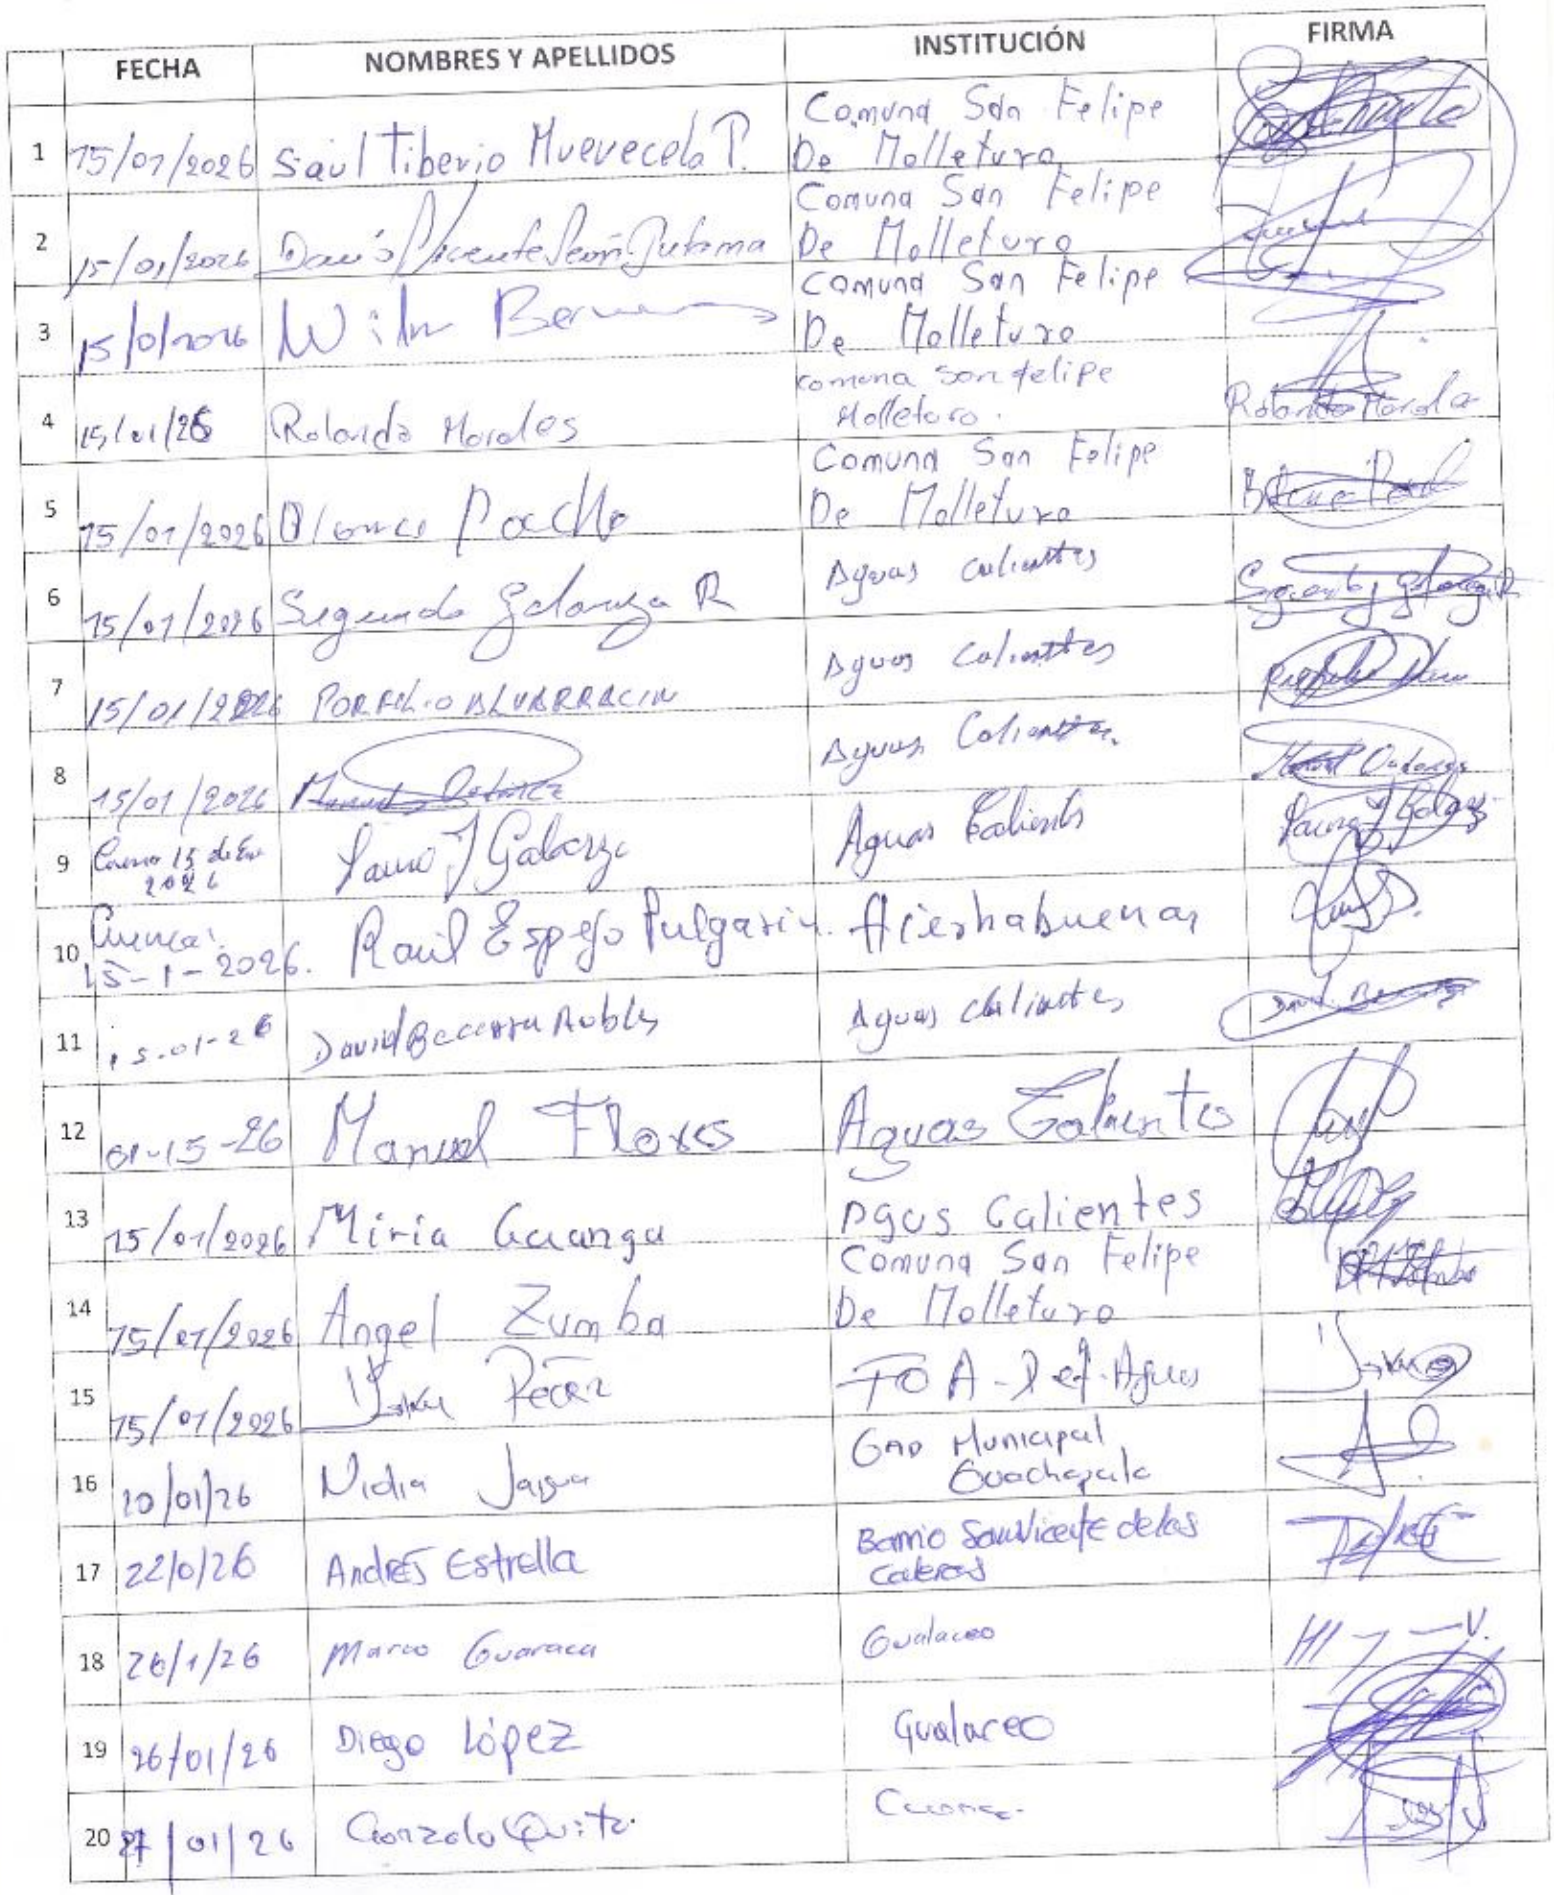 FECHA NOMBRES Y APELLIDOS INSTITUCIÓN FIRMA
1 15/01/2026 Saúl Tiberio Muevecela P. Comuna San Felipe
De Molleturo
2 15/01/2026 Vicente León Gutama Comuna San Felipe
De Molleturo
3 15/0/2026 Comuna San Felipe
De Molleturo
4 15/01/26 Rolando Morales comuna san felipe
Molleturo. Rolando Morales
5 15/01/2026 Comuna San Felipe
De Molleturo
6 15/01/2026 Segundo Galarza R Aguas calientes Segundo Galarza R
7 15/01/2026 PORFILIO ALVARRACIN Aguas Calientes
8 15/01/2026 Aguas Calientes
9 15 de En
2026 Lauro J Galarza Aguas Calientes Lauro J Galarza
10 Cuenca
15-1-2026. Raúl Espejo Pulgarin. Hierbabuenas
11 15-01-26 David Becerra Robles Aguas Calientes
12 01-15-26 Manuel Flores Aguas Calientes
13 15/01/2026 Miria Guanga Agus Calientes
14 15/01/2026 Angel Zumba Comuna San Felipe
De Molleturo
15 15/01/2026
16 20/01/26 Nidia GAD Municipal
Guachapala
17 22/0/26 Andrés Estrella Barrio San Vicente de las
Caleras
18 26/1/26 Marco Guaraca Gualaceo
19 26/01/26 Diego López Gualaceo
20 27/01/26 Gonzalo Cuenca.